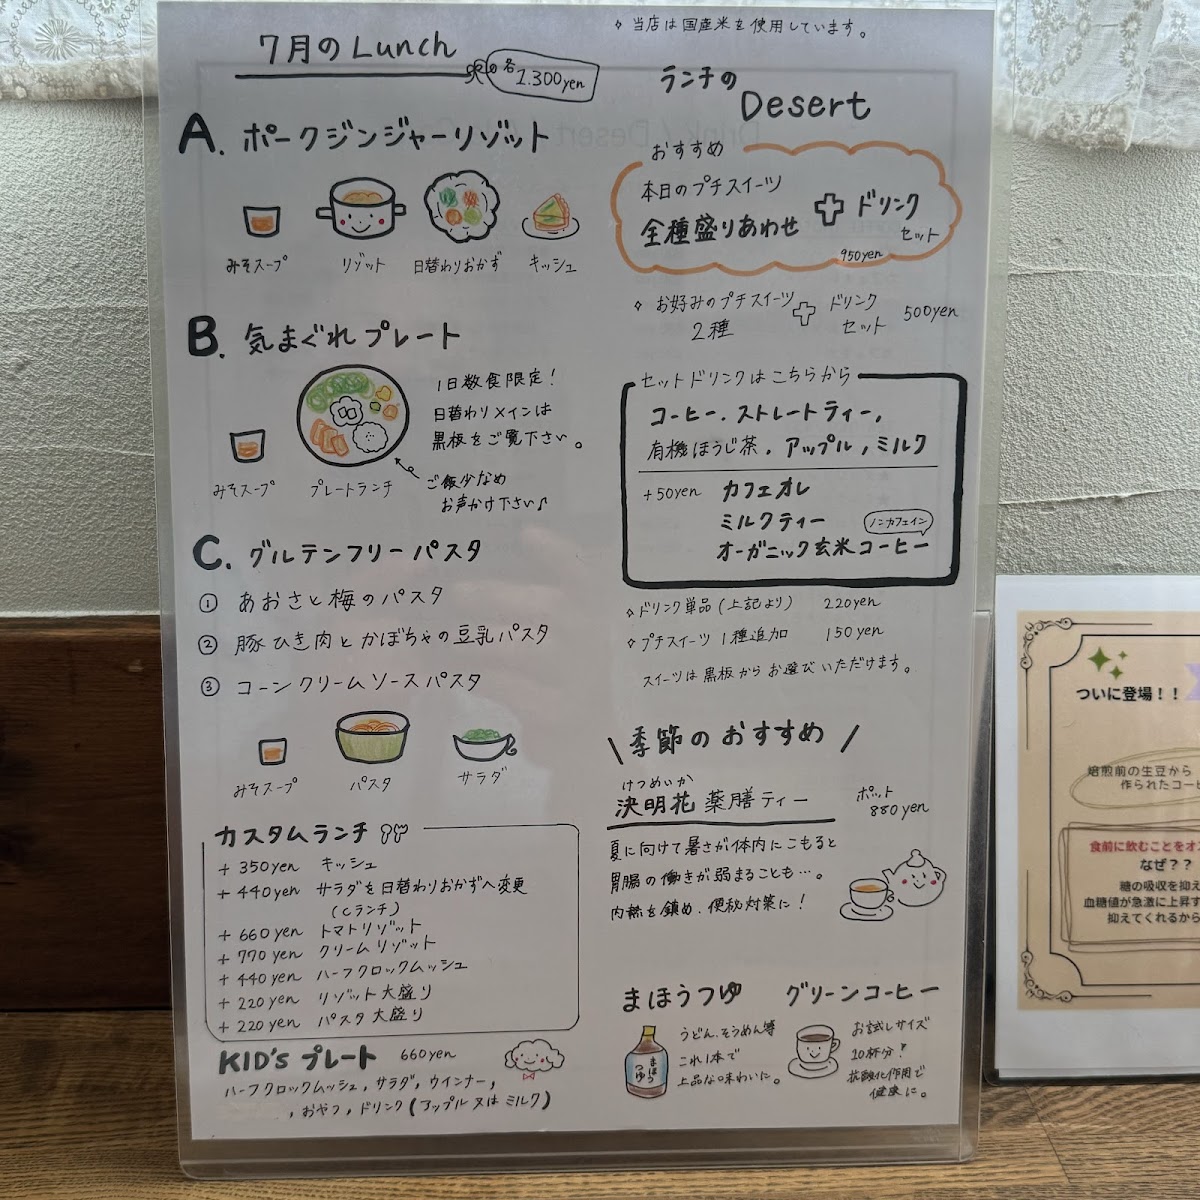 ◇ 当店は国産米を使用しています。
7月のLunch
各
1.300yen
A. ポークジンジャーリゾット
みそスープ
リゾット
日替わりおかず
キッシュ
B. 気まぐれプレート
1日数食限定!
日替わりメインは
黒板をご覧下さい。
みそスープ
プレートランチ
ご飯少なめ
お声かけ下さい♪
C. グルテンフリーパスタ
① あおさと梅のパスタ
② 豚ひき肉とかぼちゃの豆乳パスタ
③ コーンクリームソースパスタ
みそスープ
パスタ
サラダ
カスタムランチ
+ 350yen キッシュ
+ 440yen サラダを日替わりおかずへ変更
(Cランチ)
+ 660yen トマトリゾット
+ 770yen クリームリゾット
+ 440yen ハーフクロックムッシュ
+ 220yen リゾット大盛り
+ 220yen パスタ大盛り
KID'S プレート 660yen
ハーフクロックムッシュ, サラダ, ウインナー,
, おやつ, ドリンク(アップル又はミルク)
ランチの
Desert
おすすめ
本日のプチスイーツ
全種盛りあわせ
+ ドリンク
セット
950yen
◇ お好みのプチスイーツ
2種
+ ドリンク
セット
500yen
セットドリンクはこちらから
コーヒー. ストレートティー,
有機ほうじ茶. アップル, ミルク
+50yen カフェオレ
ミルクティー
ノンカフェイン
オーガニック玄米コーヒー
◇ドリンク単品(上記より) 220yen
◇プチスイーツ1種追加 150yen
スイーツは黒板からお選びいただけます。
\ 季節のおすすめ /
けつめいか
決明花 薬膳ティー
ポット
880yen
夏に向けて暑さが体内にこもると
胃腸の働きが弱まることも…。
内熱を鎮め、便秘対策に!
まほうつゆ
うどん、そうめん等
これ1本で
上品な味わいに。
まほうつゆ
グリーンコーヒー
お試しサイズ
10杯分!
抗酸化作用で
健康に。
ついに登場!!
焙煎前の生豆から
作られたコーヒ
食前に飲むことをオス
なぜ??
糖の吸収を抑え
血糖値が急激に上昇す
抑えてくれるから